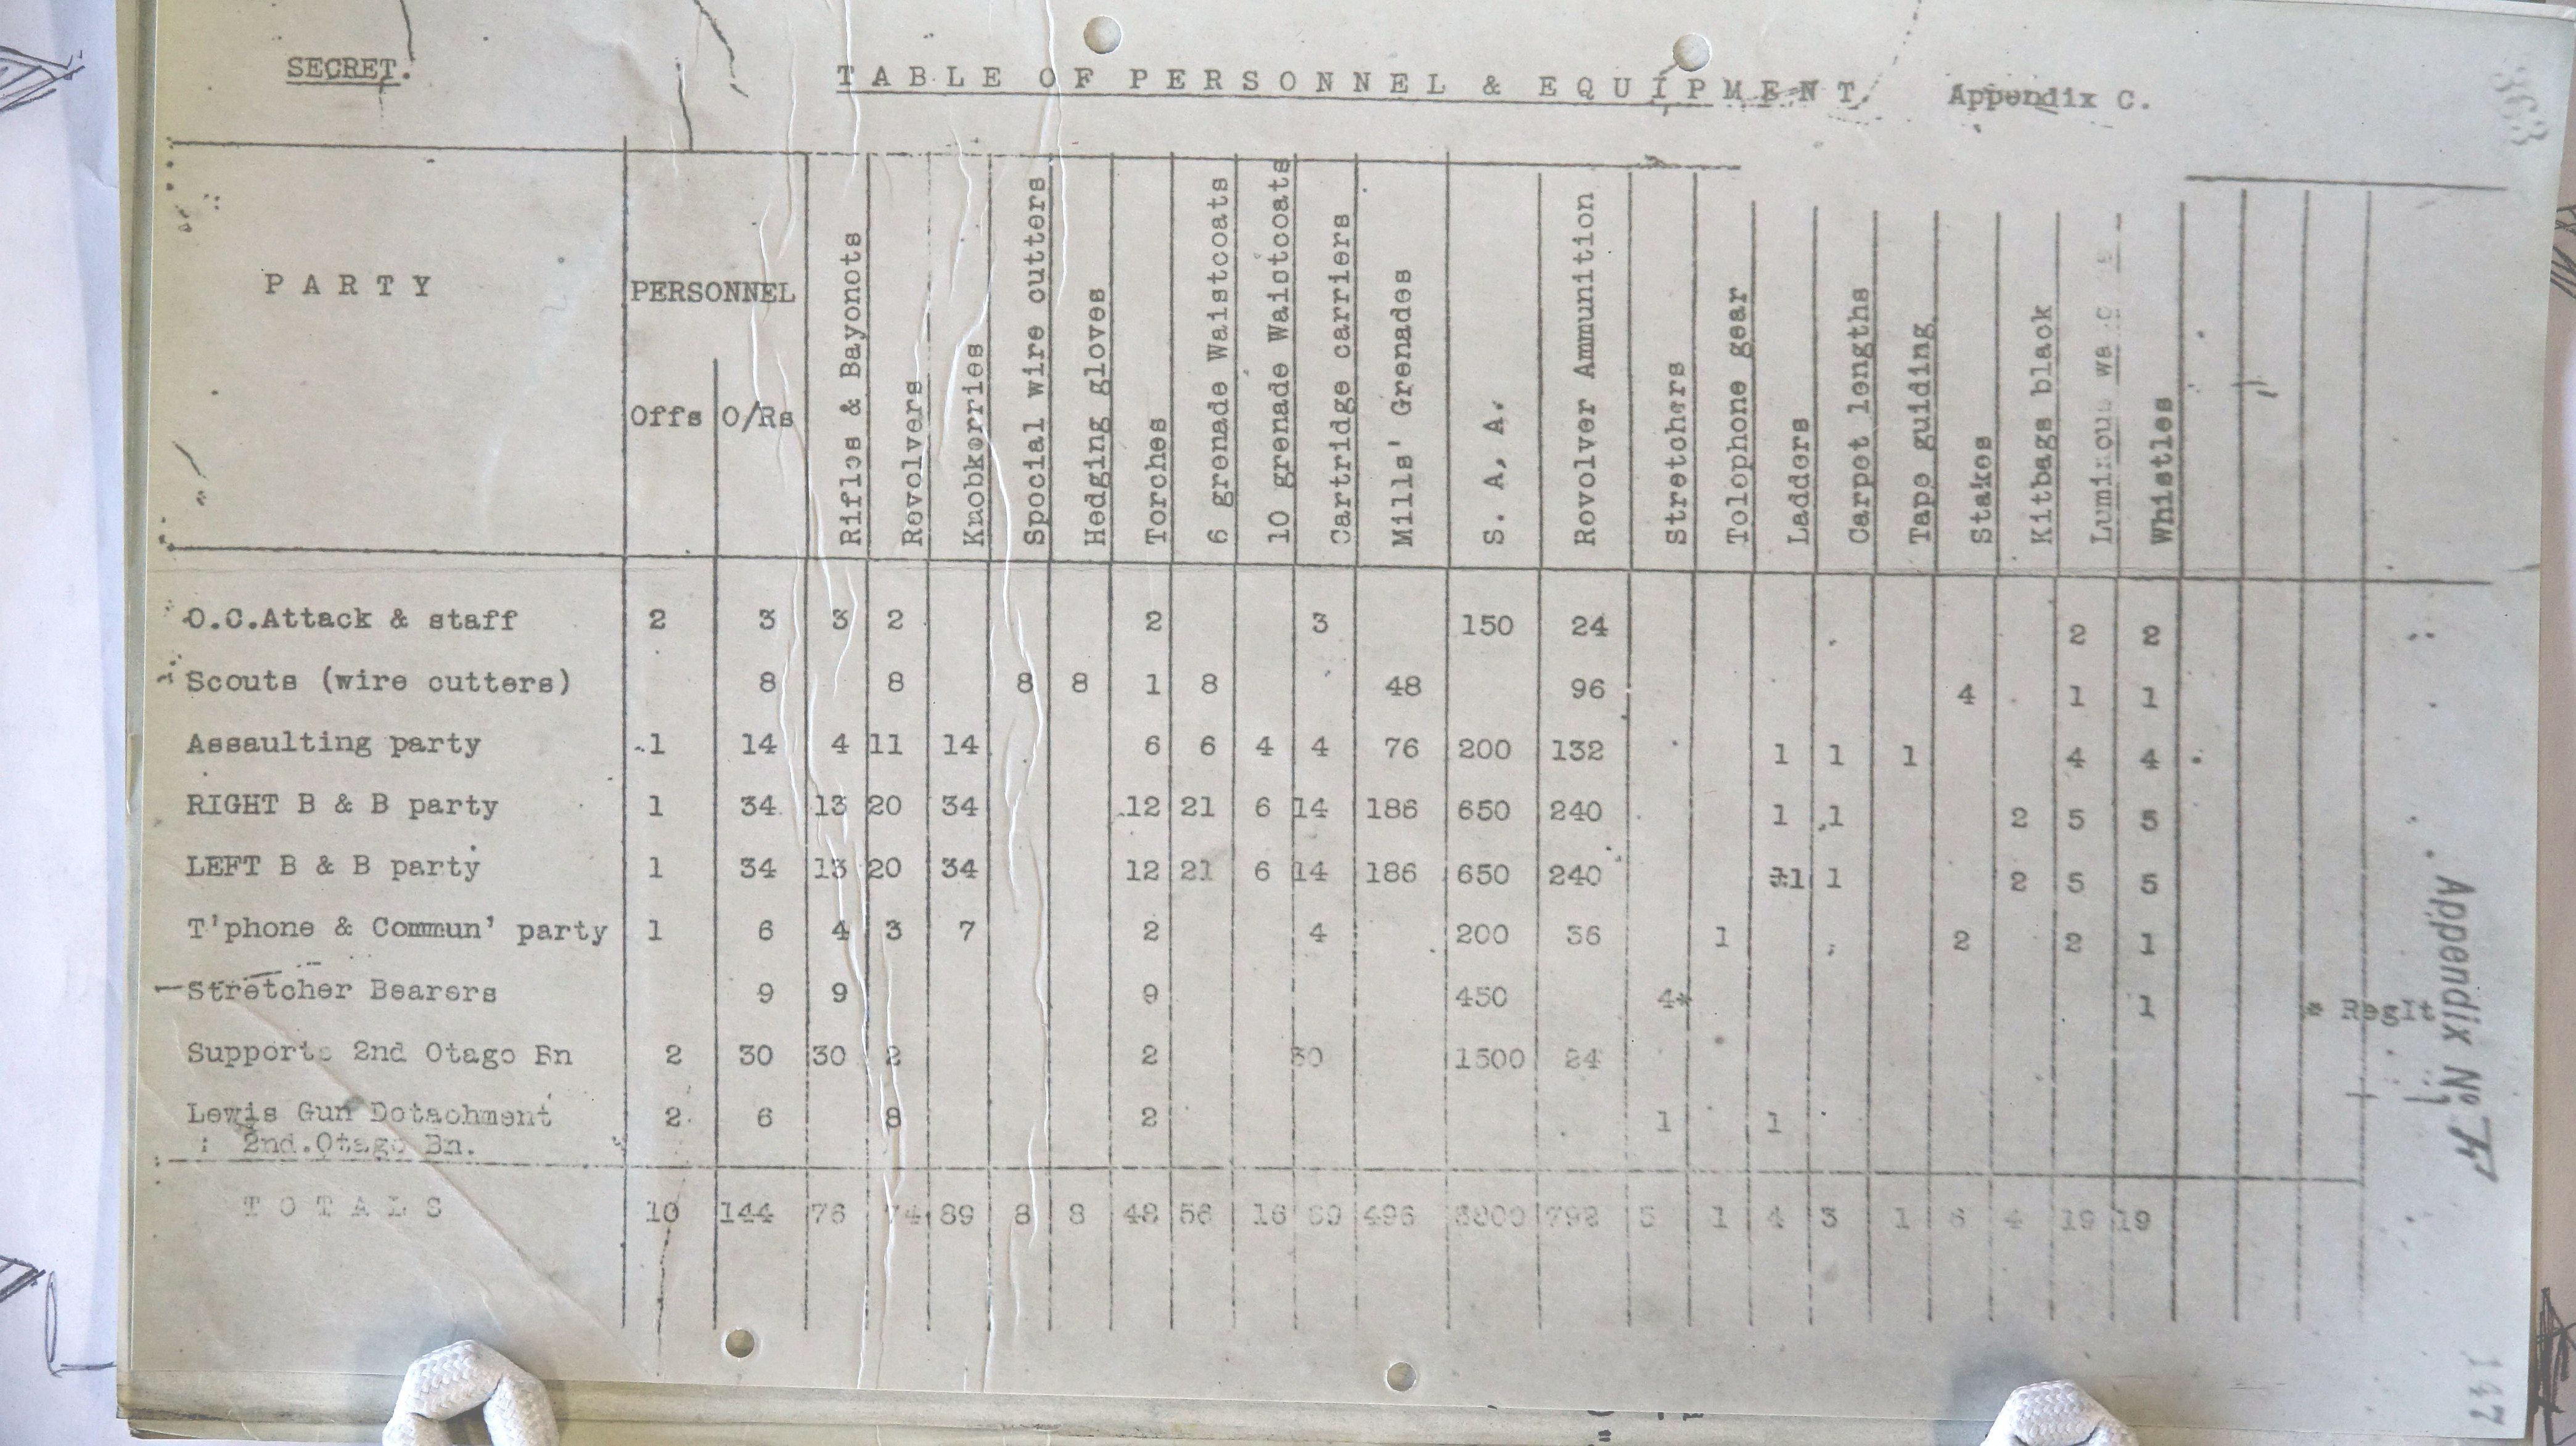 SECRET.
TABLE OF PERSONNEL & EQUIPMENT
Appendix C.
363
PARTY
PERSONNEL
Offs O/Rs
Rifles & Bayonots
Revolvers
Knobkerries
Spocial wire cutters
Hedging gloves
Torches
6 grenade Waistcoats
10 grenade Waistcoats
Cartridge carriers
Mills' Grenades
S. A. A.
Revolver Ammunition
Stretchers
Tolophone gear
Ladders
Carpet lengths
Tape guiding
Stakes
Kitbags black
Luminous
Whistles
O.C.Attack & staff 2 3 3 2 2 3 150 24 2 2
Scouts (wire cutters) 8 8 8 8 1 8 48 96 4 1 1
Assaulting party 1 14 4 11 14 6 6 4 4 76 200 132 1 1 1 4 4
RIGHT B & B party 1 34 13 20 34 12 21 6 14 186 650 240 1 1 2 5 5
LEFT B & B party 1 34 13 20 34 12 21 6 14 186 650 240 1 1 2 5 5
T'phone & Commun' party 1 6 4 3 7 2 4 200 36 1 2 2 1
Stretcher Bearers 9 9 9 450 4* 1 * Reglt
Supports 2nd Otago Bn 2 30 30 2 2 30 1500 24
Lewis Gun Dotachment 2 6 8 2 1 1
2nd.Otago Bn.
TOTALS 10 144 76 74 89 8 8 48 56 16 69 496 3800 792 5 1 4 3 1 6 4 19 19
Appendix No
147